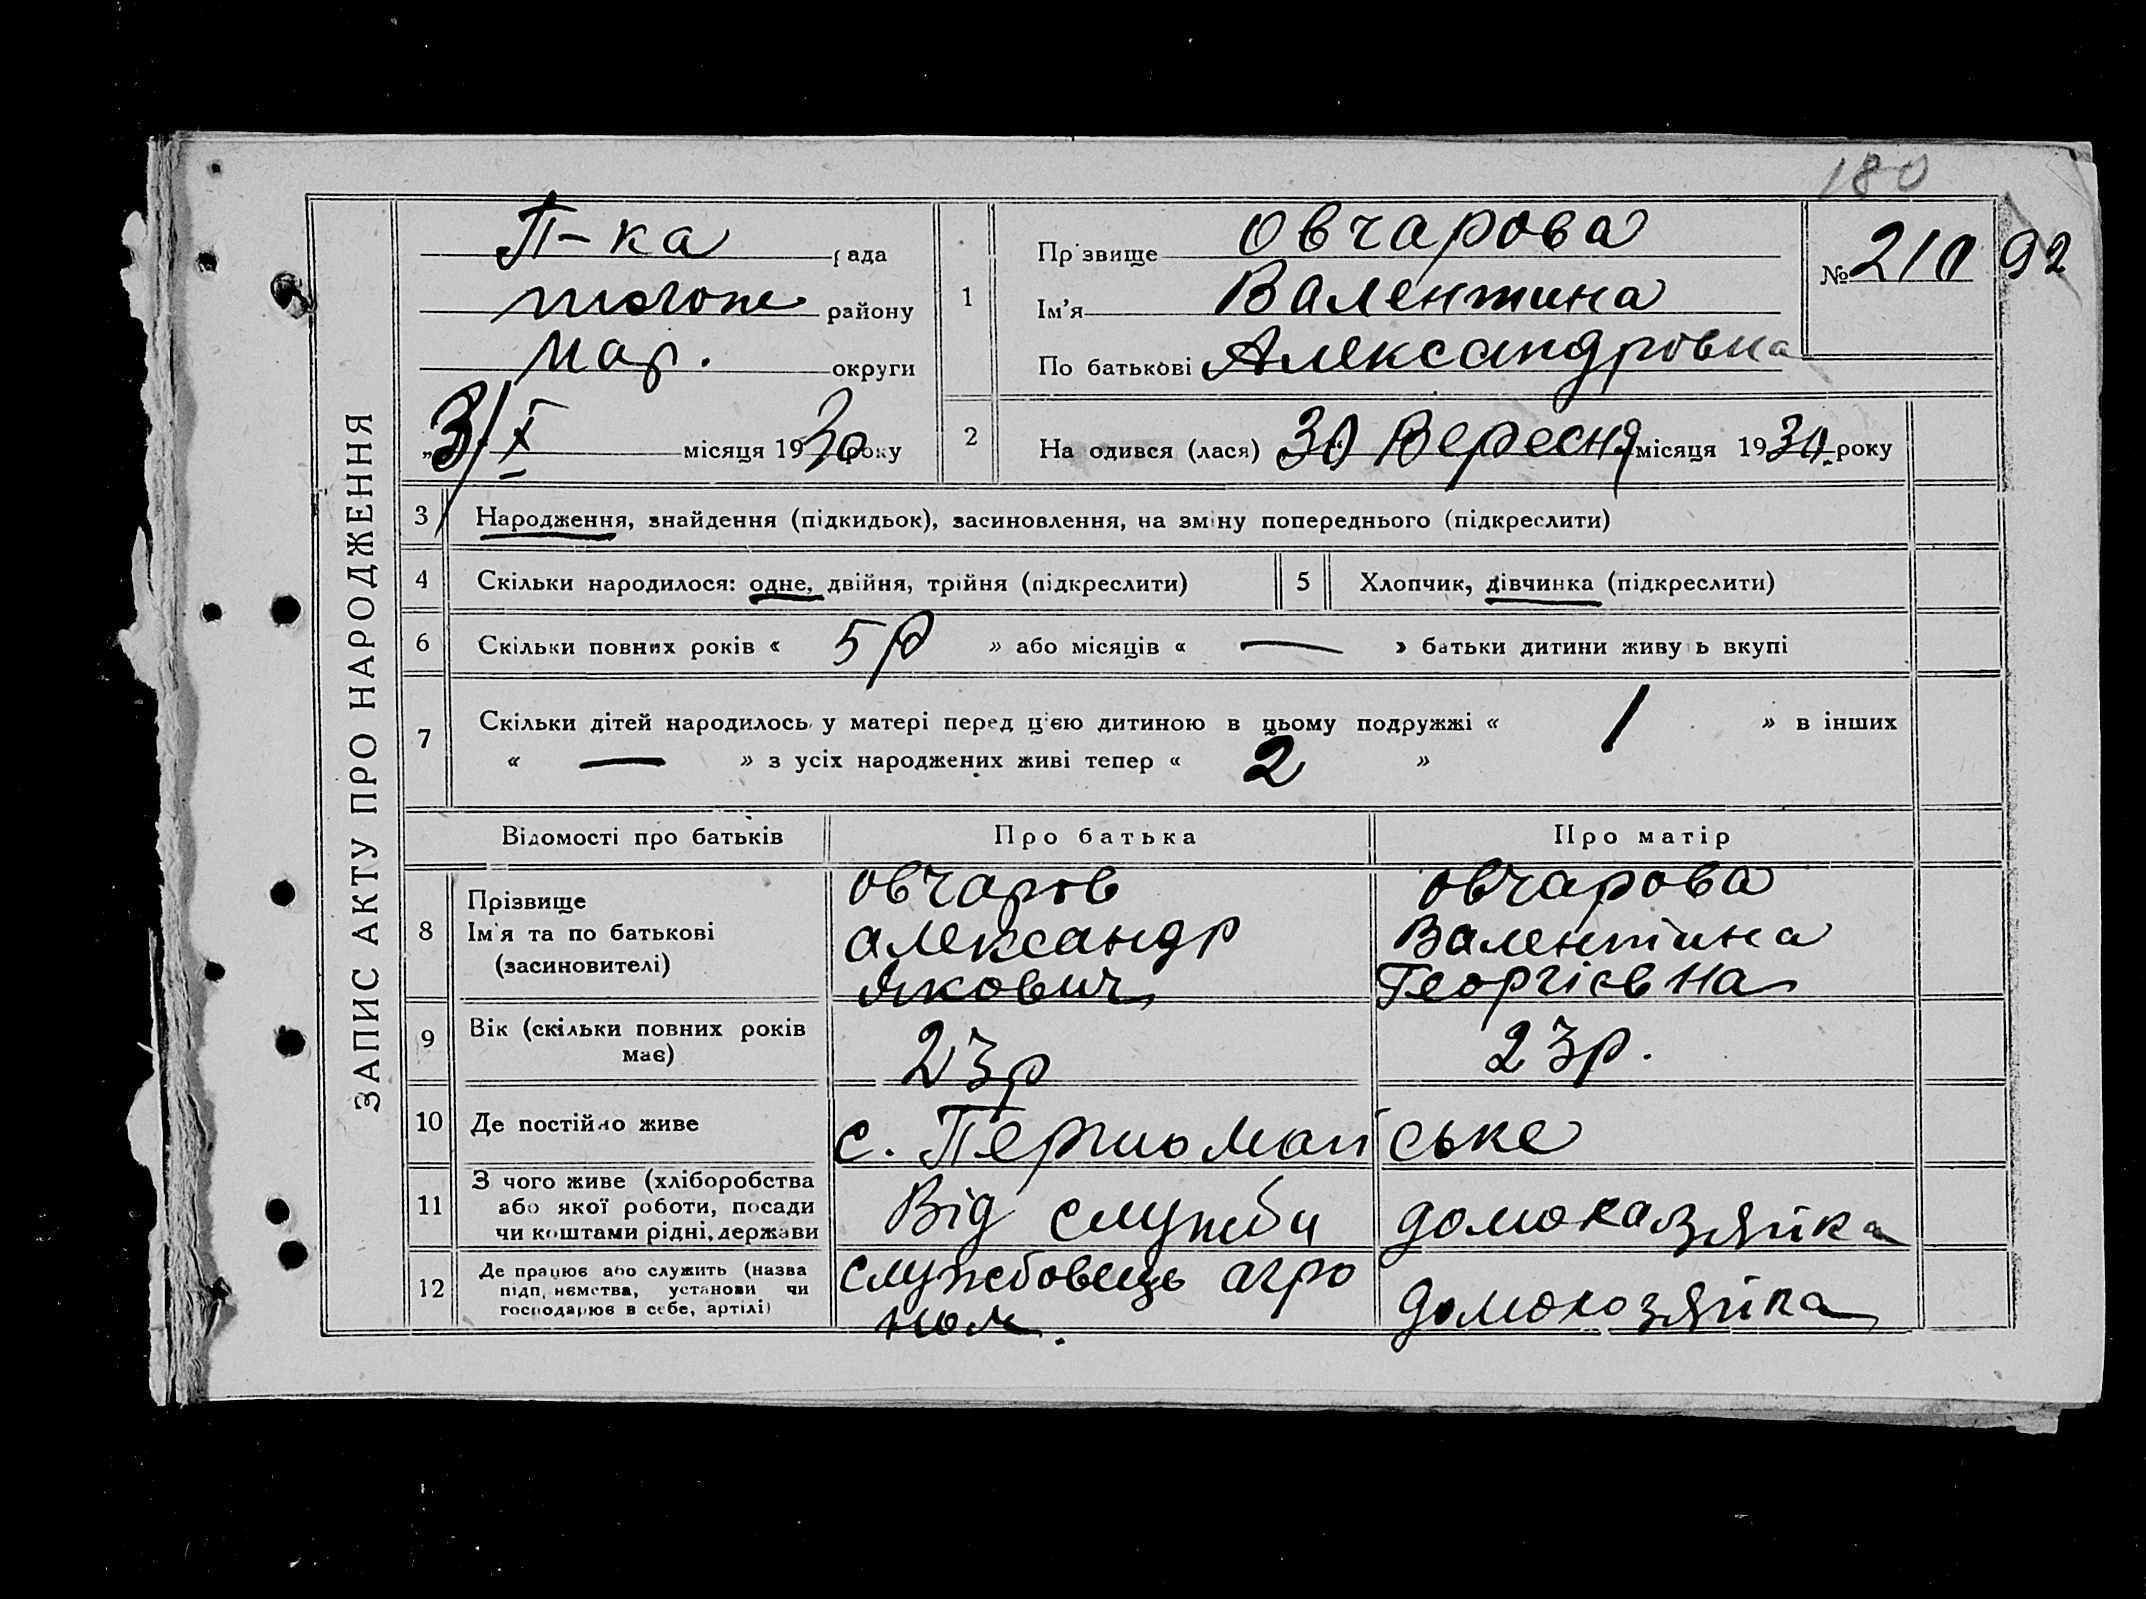 180
ЗАПИС АКТУ ПРО НАРОДЖЕННЯ
П-ка рада
району
Мар. округи
„3/X місяця 1930 року
1 Прізвище Овчарова
Ім'я Валентина
По батькові Александровна
№ 210 92
2 Народився (лася) 30 Вересня місяця 1930 року
3 Народження, знайдення (підкидьок), засиновлення, на зміну попереднього (підкреслити)
4 Скільки народилося: одне, двійня, трійня (підкреслити) 5 Хлопчик, дівчинка (підкреслити)
6 Скільки повних років « 5 р » або місяців « — » батьки дитини живуть вкупі
7 Скільки дітей народилось у матері перед цією дитиною в цьому подружжі « 1 » в інших
« — » з усіх народжених живі тепер « 2 »
Відомості про батьків Про батька Про матір
8 Прізвище
Ім'я та по батькові
(засиновителі)
Овчаров
Александр
Якович
Овчарова
Валентина
Георгієвна
9 Вік (скільки повних років
має)
23р
23р.
10 Де постійно живе с. Першомайське
11 З чого живе (хліборобства
або якої роботи, посади
чи коштами рідні, держави
Від служби
домохазяйка
12 Де працює або служить (назва
підприємства, установи чи
господарює в себе, артілі)
службовець агро
ном.
домохозяйка